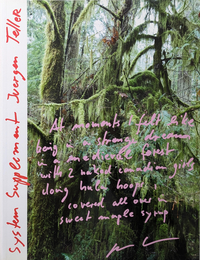 System Supplement Juergen Teller
At moments I felt to be
being in a strange dream
in a medieval forest
with 2 naked canadian girls
doing hula hoop
covered all over in
sweet maple syrup